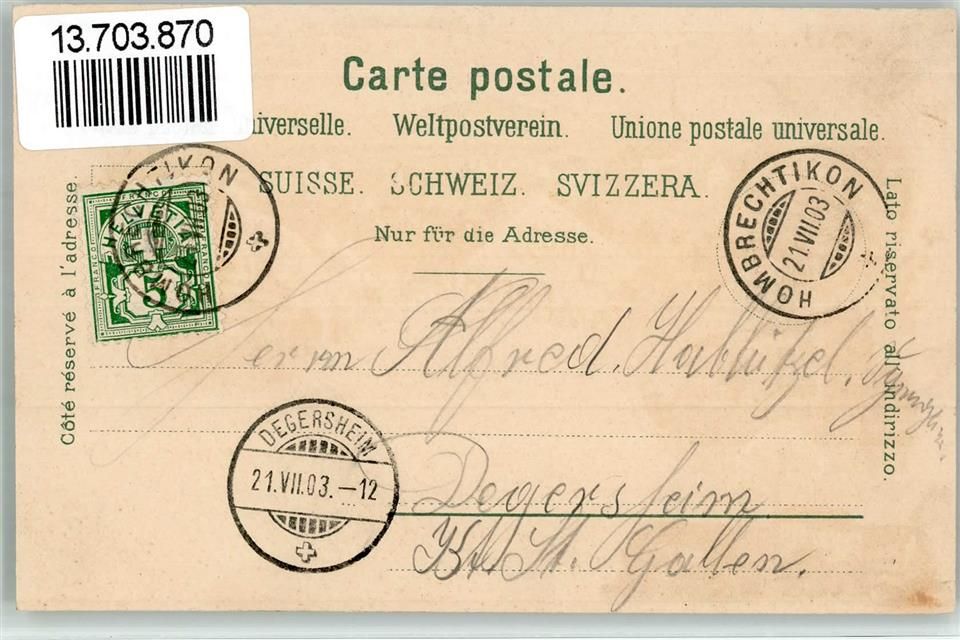 13.703.870
Carte postale.
universelle. Weltpostverein. Unione postale universale.
SUISSE. SCHWEIZ. SVIZZERA.
Nur für die Adresse.
Côté réservé à l'adresse.
Lato riservato all'indirizzo.
HELVETIA
FRANCO
5
HOMBRECHTIKON
21.VII.03
Herrn Alfred Hablützel,
DEGERSHEIM
21.VII.03.-12
Degersheim
Kt. St. Gallen.